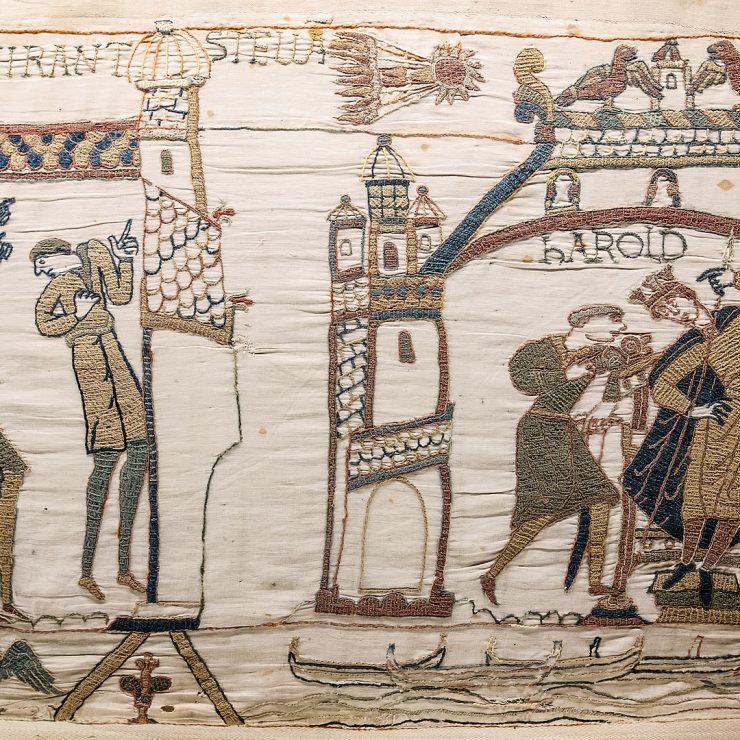 IRANT STELLA
hAROLD